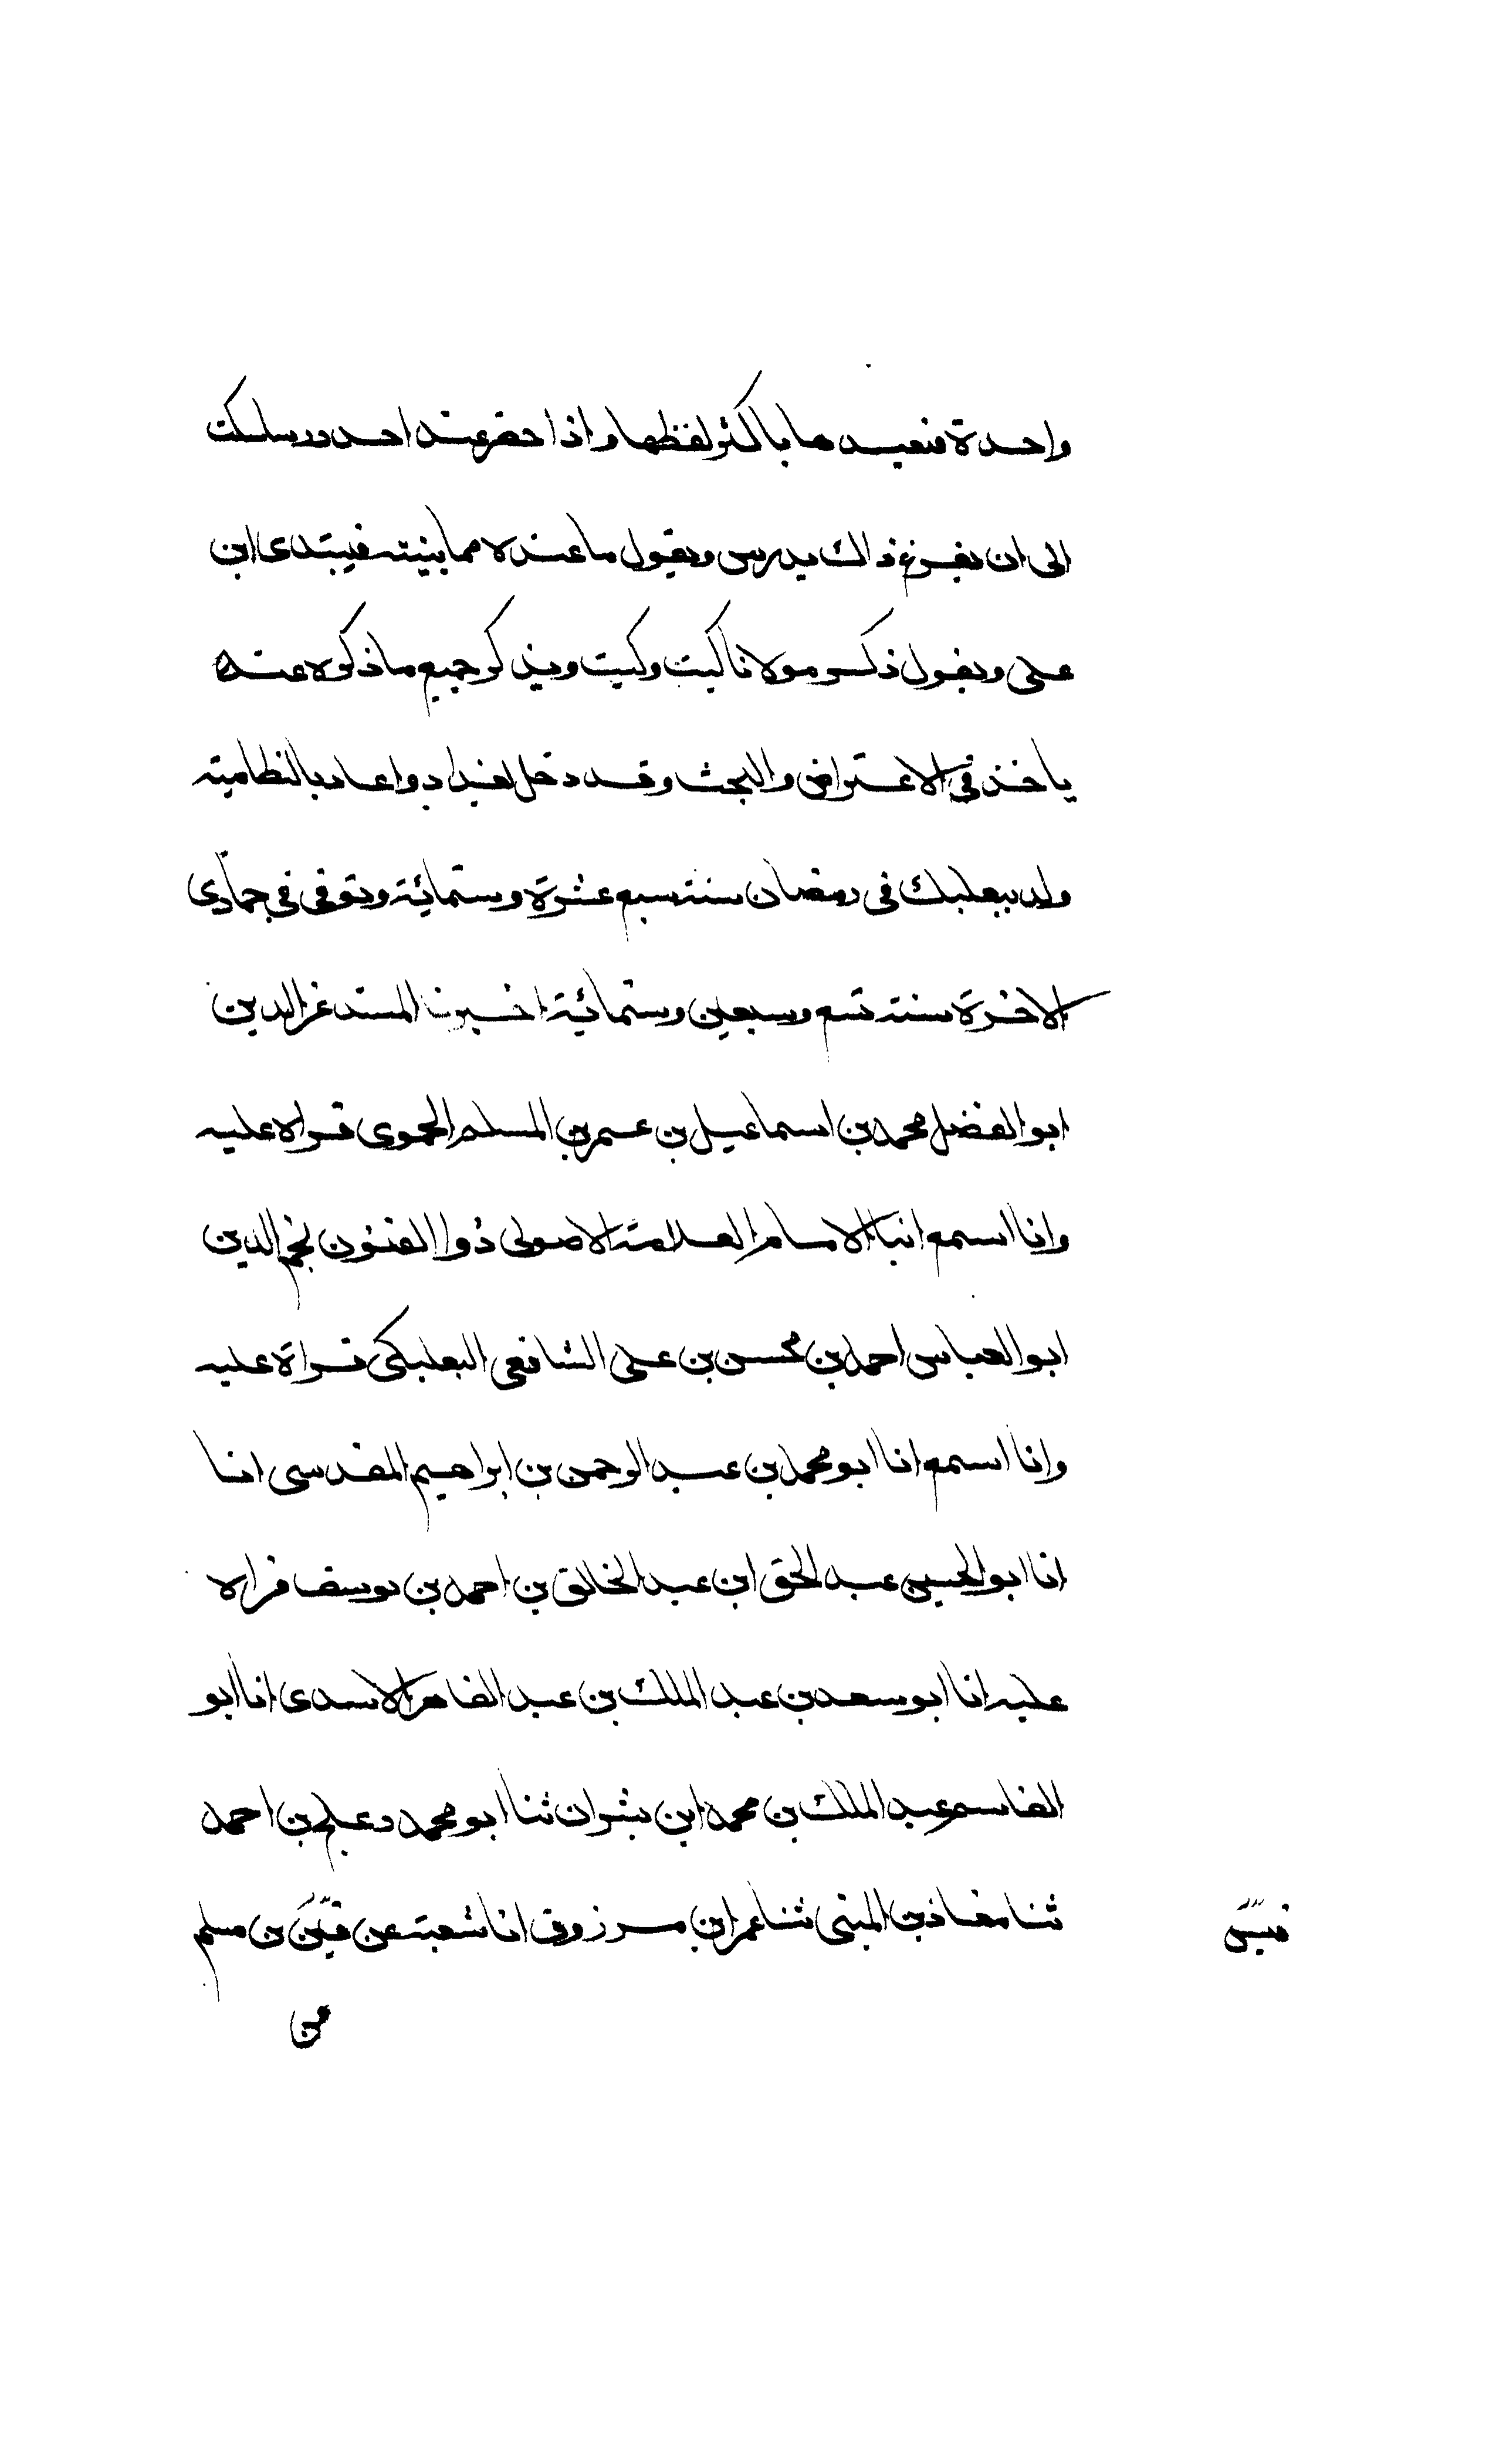 واحدة فنعيدها باكثر لفظها واذا حضر عند احد درسا سكت
الى ان يفرغ ذالك يدرس ويقول ما عنده مما بنيته فيبتدى ابن
على ويقول ذكر مولانا كيت وكيت ويذكر جميع ما ذكره عنه
ياخذ في الاعتراض والبحث وقد دخل لغداد واعاد بالنظامية
ولد ببعلبك فى رمضان سنة سبع عشرة وستمائة وتوفى في جمادى
الاخرة سنة تسع وسبعين وستمائة اخبرنا المسند عز الدين
ابو الفضل محمد بن اسماعيل بن عمر بن المسلم الحموى قراة عليه
وانا اسمع انبا الامام العلامة الاصولى ذوا الفنون نجم الدين
ابو العباس احمد بن محسن بن على الشافعى البعلبكى قراة عليه
وانا اسمع انا ابو محمد بن عبد الرحمن بن ابراهيم المقدسى انا
انا ابو الحسين عبد الحق ابن عبد الخالق بن احمد بن يوسف قراة
عليه انا ابو سعد بن عبد الملك بن عبد القاهر الاسدى انا ابو
القاسم عبد الملك بن محمد ابن بشران ثنا ابو محمد دعلج بن احمد
ثنا معاذ بن المثنى ثنا عمر ابن مرزوق انا شعبة عن قيس بن مسلم
قيس
عن